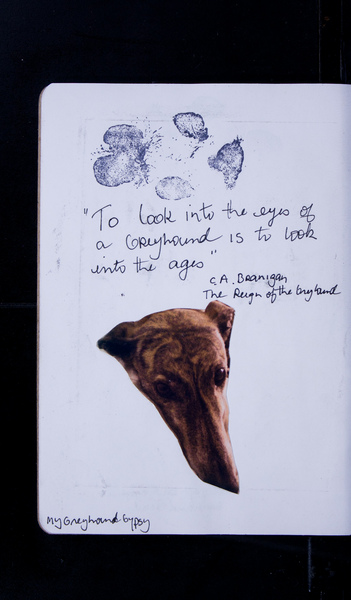 "To look into the eyes of
a Greyhound is to look
into the ages"
C.A. Branigan
The Reign of the Greyhound
My Greyhound Gypsy